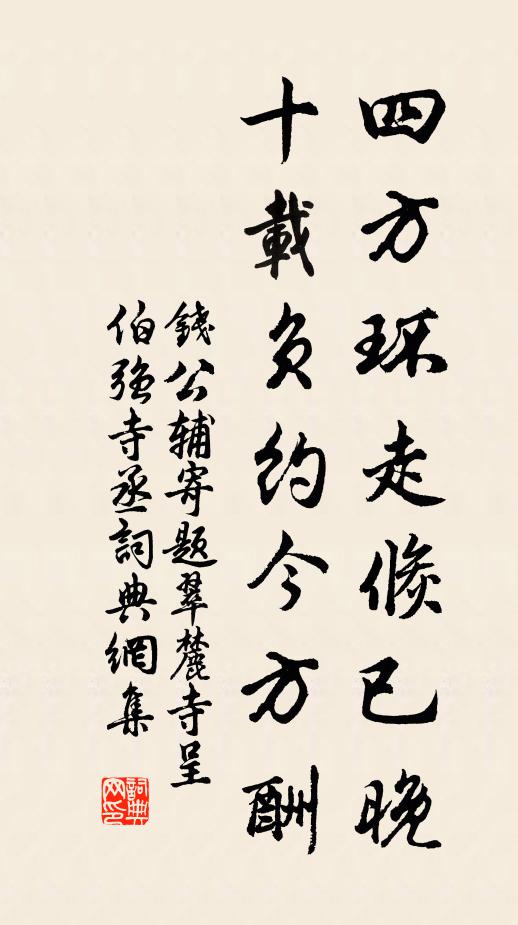 四方环走倏已晚
十載负约今方酬
錢公辅寄题翠麓寺呈
伯强寺丞詞典網集
詞典網印